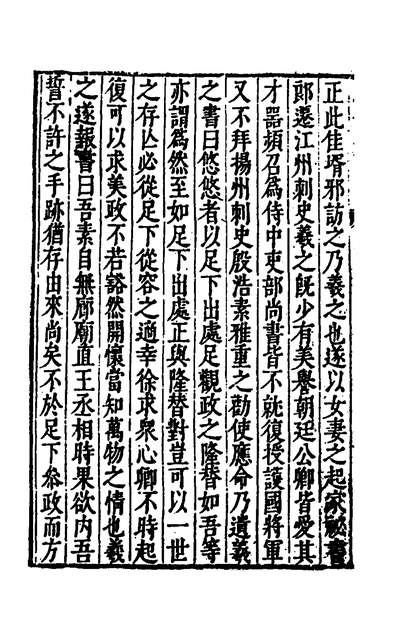 正此佳壻邪訪之乃羲之也遂以女妻之起家祕書
郎遷江州刺史羲之旣少有美譽朝廷公卿皆愛其
才器頻召爲侍中吏部尚書皆不就復授護國將軍
又不拜揚州刺史殷浩素雅重之勸使應命乃遺羲
之書曰悠悠者以足下出處足觀政之隆替如吾等
亦謂爲然至如足下出處正與隆替對豈可以一世
之存亾必從足下從容之適幸徐求眾心卿不時起
復可以求美政不若豁然開懷當知萬物之情也羲
之遂報書曰吾素自無廊廟直王丞相時果欲内吾
誓不許之手跡猶存由來尚矣不於足下參政而方